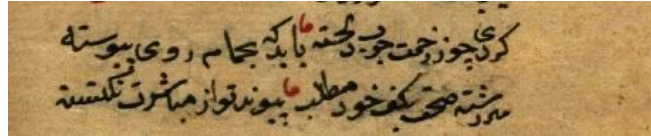 کردی چوز زحمت جرب دلخسته باید که بحمام روی پیوسته
سررشته صحت بکف خود مطلب پیوند تو از مباشرت نگسسته